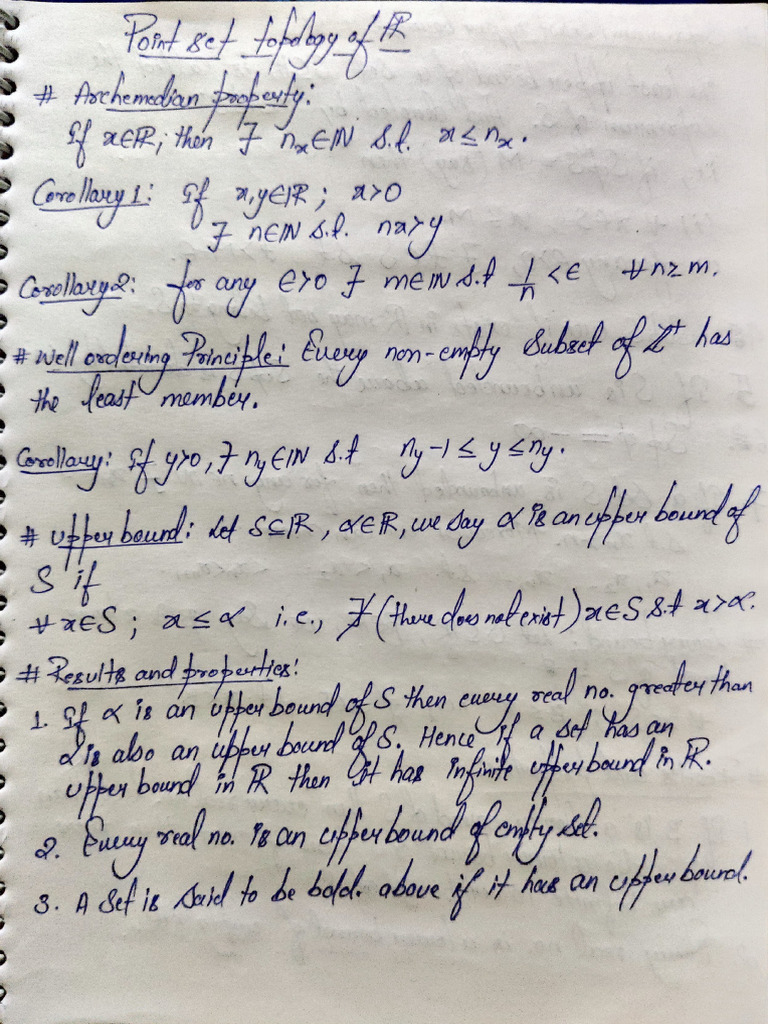 Point set topology of ℝ
# Archemedian property:
If x∈ℝ; then ∃ nₓ∈ℕ s.t. x≤nₓ.
Corollary 1: If x,y∈ℝ; x>0
∃ n∈ℕ s.t. nx>y
Corollary 2: for any ϵ>0 ∃ m∈ℕ s.t 1/n <ϵ ∀n≥m.
# Well ordering Principle: Every non-empty Subset of ℤ⁺ has
the least member.
Corollary: If y>0, ∃ n_y∈ℕ s.t n_y-1≤y≤n_y.
# upper bound: Let S⊆ℝ, α∈ℝ, we say α is an upper bound of
S if
∀x∈S; x≤α i.e., ∄ (there does not exist) x∈S s.t x>α.
# Results and properties:
1. If α is an upper bound of S then every real no. greater than
α is also an upper bound of S. Hence if a set has an
upper bound in ℝ then it has infinite upper bound in ℝ.
2. Every real no. is an upper bound of empty set.
3. A set is said to be bdd. above if it has an upper bound.